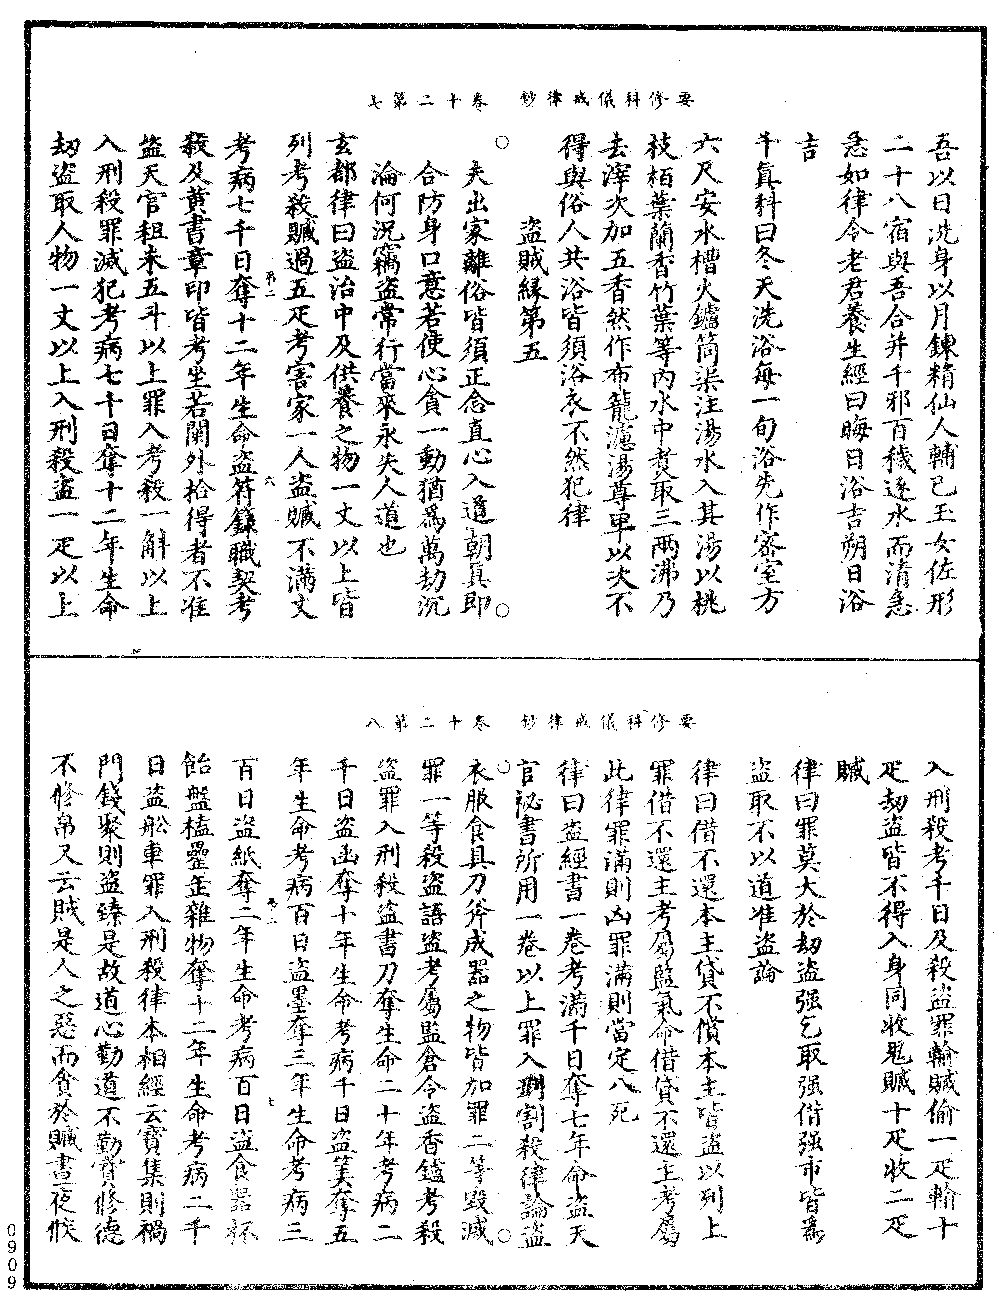 要修科儀戒律鈔　卷十二第七
吾以日洗身以月鍊精仙人輔已玉女佐形
二十八宿與吾合并千邪百穢逐水而清急
急如律令老君養生經曰晦日浴吉朔日浴
吉
千真科曰冬天洗浴每一旬浴先作密室方
六尺安水槽火鑪筒渠注湯水入其湯以桃
枝栢葉蘭香竹葉等内水中煑取三兩沸乃
去滓次加五香然作布籠漉湯尊卑以次不
得與俗人共浴皆須浴衣不然犯律
盜賊緣第五
夫出家離俗皆須正念直心入道朝真即
合防身口意若使心貪一動猶爲萬劫沉
淪何況竊盜常行當來永失人道也
玄都律曰盜治中及供養之物一文以上皆
列考殺贓過五疋考害家一人盜贓不滿文
考病七千日奪十二年生命盜符籙職契考
殺及黃書章印皆考坐若闌外拾得者不准
盜天官租米五斗以上罪入考殺一斛以上
入刑殺罪減犯考病七十日奪十二年生命
劫盜取人物一丈以上入刑殺盜一疋以上
要修科儀戒律鈔　卷十二第八
入刑殺考千日及殺盜罪輸贓偷一疋輸十
疋劫盜皆不得入身同收鬼贓十疋收二疋
贓
律曰罪莫大於劫盜强乞取强借强市皆爲
盜取不以道准盜論
律曰借不還本主貸不償本主皆盜以列上
罪借不還主考屬監氣命借貸不還主考屬
此律罪滿則凶罪滿則當定八死
律曰盜經書一卷考滿千日奪七年命盜天
官祕書所用一卷以上罪入劓割殺律論盜
衣服食具刀斧成器之物皆加罪二等毀滅
罪一等殺盜語盜考屬監倉令盜香鑪考殺
盜罪入刑殺盜書刀奪生命二十年考病二
千日盜函奪十年生命考病千日盜筭奪五
年生命考病百日盜墨奪三年生命考病三
百日盜紙奪二年生命考病百日盜食器杯
飴盤榼罍缶雜物奪十二年生命考病二千
日盜舩車罪入刑殺律本相經云寶集則禍
門錢聚則盜臻是故道心勤道不勤賞修德
不修帛又云賊是人之惡而貪於贓晝夜候
0909